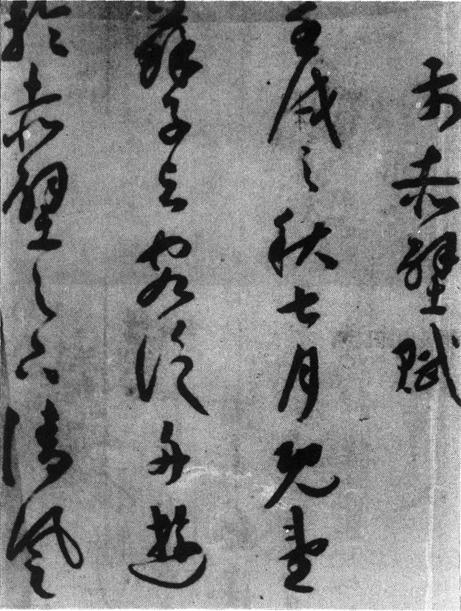 前赤壁賦
壬戌之秋七月既望
蘇子与客泛舟遊
於赤壁之下清風